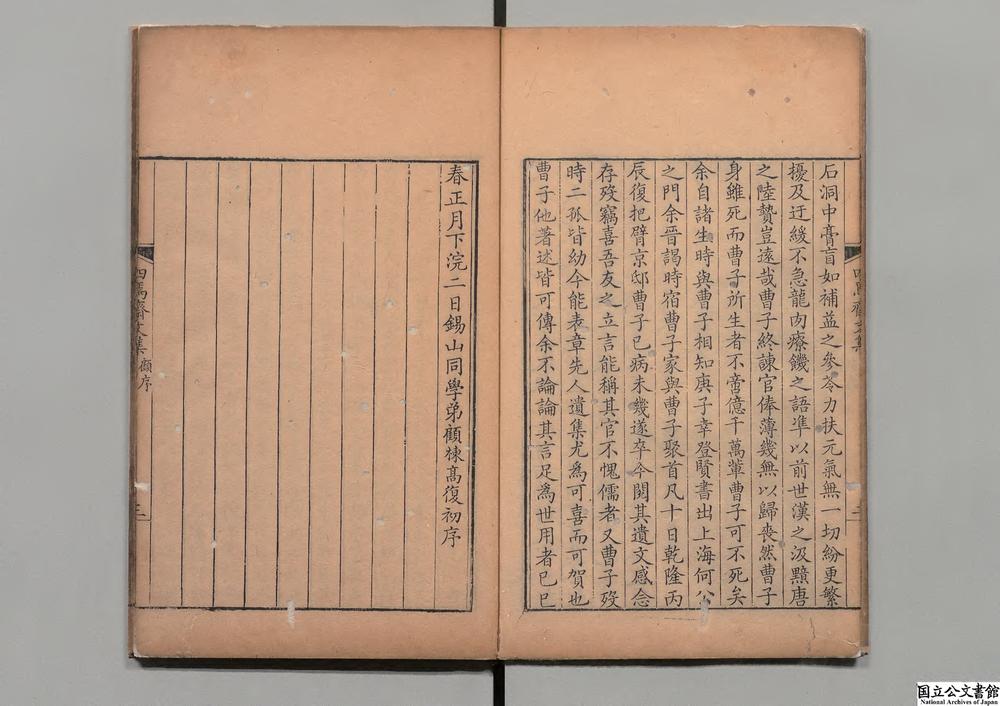 石洞中膏肓如補益之參苓力扶元氣無一切紛更繁
擾及迂緩不急龍肉療饑之語準以前世漢之汲黯唐
之陸贄豈遠哉曹子終諫官俸薄幾無以歸喪然曹子
身雖死而曹子所生者不啻億千萬輩曹子可不死矣
余自諸生時與曹子相知庚子幸登賢書出上海何公
之門余晉謁時宿曹子家與曹子聚首凡十日乾隆丙
辰復把臂京邸曹子已病未幾遂卒今閱其遺文感念
存歿竊喜吾友之立言能稱其官不愧儒者又曹子歿
時二孤皆幼今能表章先人遺集尤為可喜而可賀也
曹子他著述皆可傳余不論論其言足為世用者已巳
春正月下浣二日錫山同學弟顧棟高復初序
四焉齋文集
顧序
三
国立公文書館
National Archives of Japan